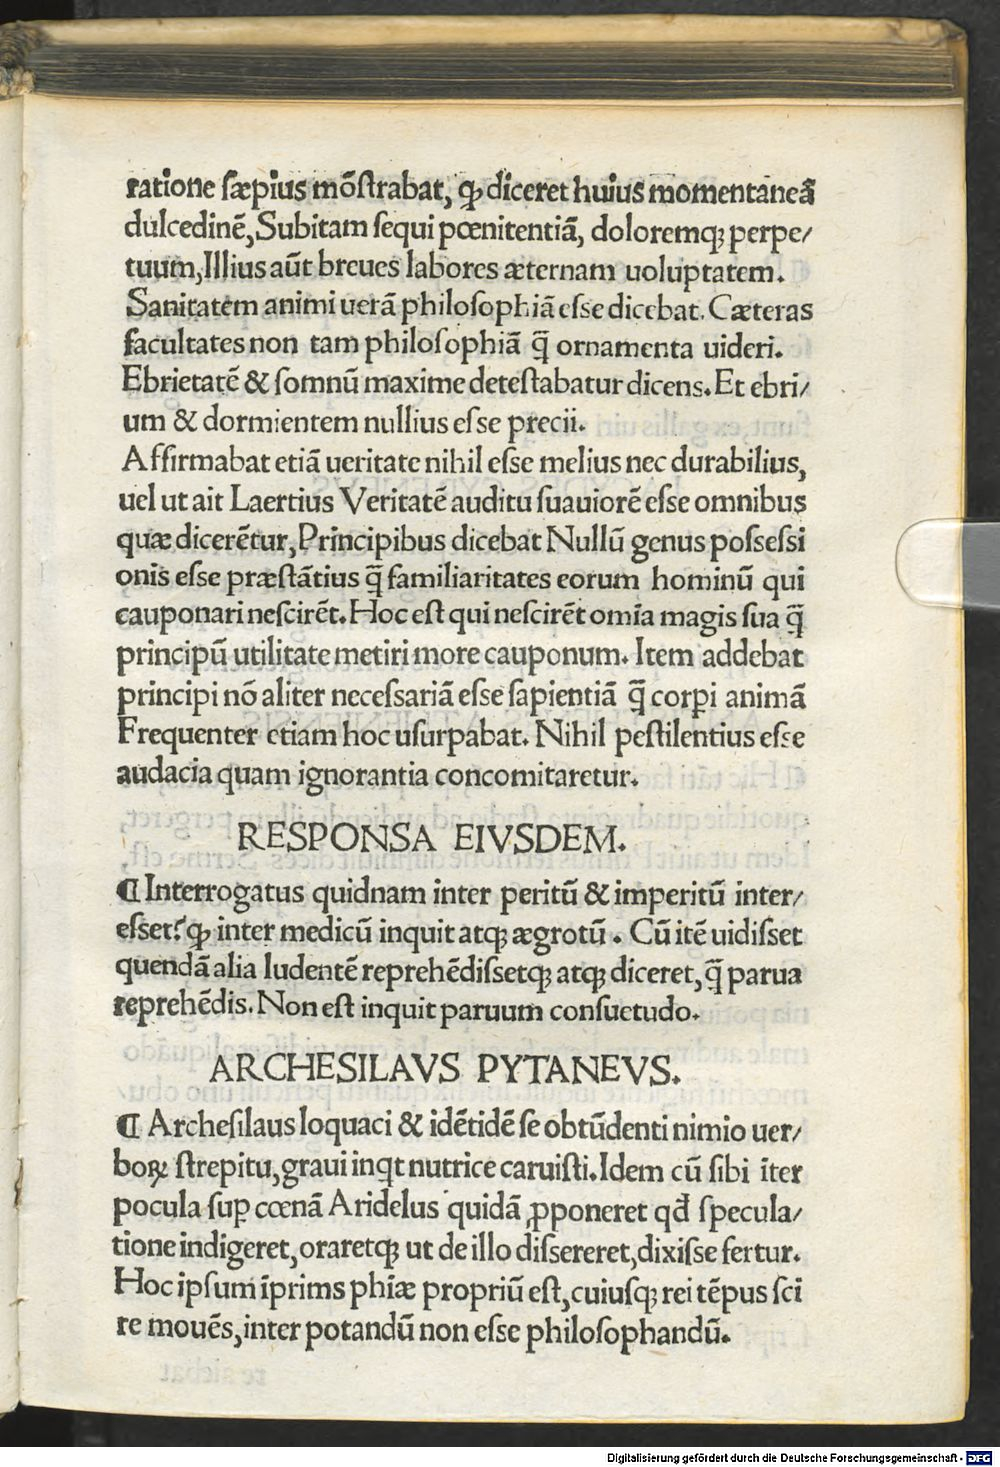 ratione ſæpius mõſtrabat, ꝙ diceret huius momentaneã
dulcedinẽ, Subitam ſequi pœnitentiã, doloremqꝫ perpe/
tuum, Illius aũt breues labores æternam uoluptatem.
Sanitatem animi uerã philoſophiã eſſe dicebat. Cæteras
facultates non tam philoſophiã q̃ ornamenta uideri.
Ebrietatẽ & ſomnũ maxime deteſtabatur dicens. Et ebri/
um & dormientem nullius eſſe precii.
Affirmabat etiã ueritate nihil eſſe melius nec durabilius,
uel ut ait Laertius Veritatẽ auditu ſuauiorẽ eſſe omnibus
quæ dicerẽtur, Principibus dicebat Nullũ genus poſſeſſi
onis eſſe præſtãtius q̃ familiaritates eorum hominũ qui
cauponari neſcirẽt. Hoc eſt qui neſcirẽt omĩa magis ſua q̃
principũ utilitate metiri more cauponum. Item addebat
principi nõ aliter neceſſariã eſſe ſapientiã q̃ corꝑi animã
Frequenter etiam hoc uſurpabat. Nihil peſtilentius eſſe
audacia quam ignorantia concomitaretur.
RESPONSA EIVSDEM.
¶ Interrogatus quidnam inter peritũ & imperitũ inter/
eſſet? ꝙ inter medicũ inquit atqꝫ ægrotũ. Cũ itẽ uidiſſet
quendã alia ludentẽ reprehẽdiſſetqꝫ atqꝫ diceret, q̃ parua
reprehẽdis. Non eſt inquit paruum conſuetudo.
ARCHESILAVS PYTANEVS.
¶ Archeſilaus loquaci & idẽtidẽ ſe obtũdenti nimio uer/
boꝝ ſtrepitu, graui inqt nutrice caruiſti. Idem cũ ſibi ĩter
pocula ſuꝑ cœnã Aridelus quidã ꝓponeret qđ ſpecula/
tione indigeret, oraretqꝫ ut de illo diſſereret, dixiſſe fertur.
Hoc ipſum ĩprims phĩæ propriũ eſt, cuiuſqꝫ rei tẽpus ſci
re mouẽs, inter potandũ non eſſe philoſophandũ.
Digitalisierung gefördert durch die Deutsche Forschungsgemeinschaft - DFG